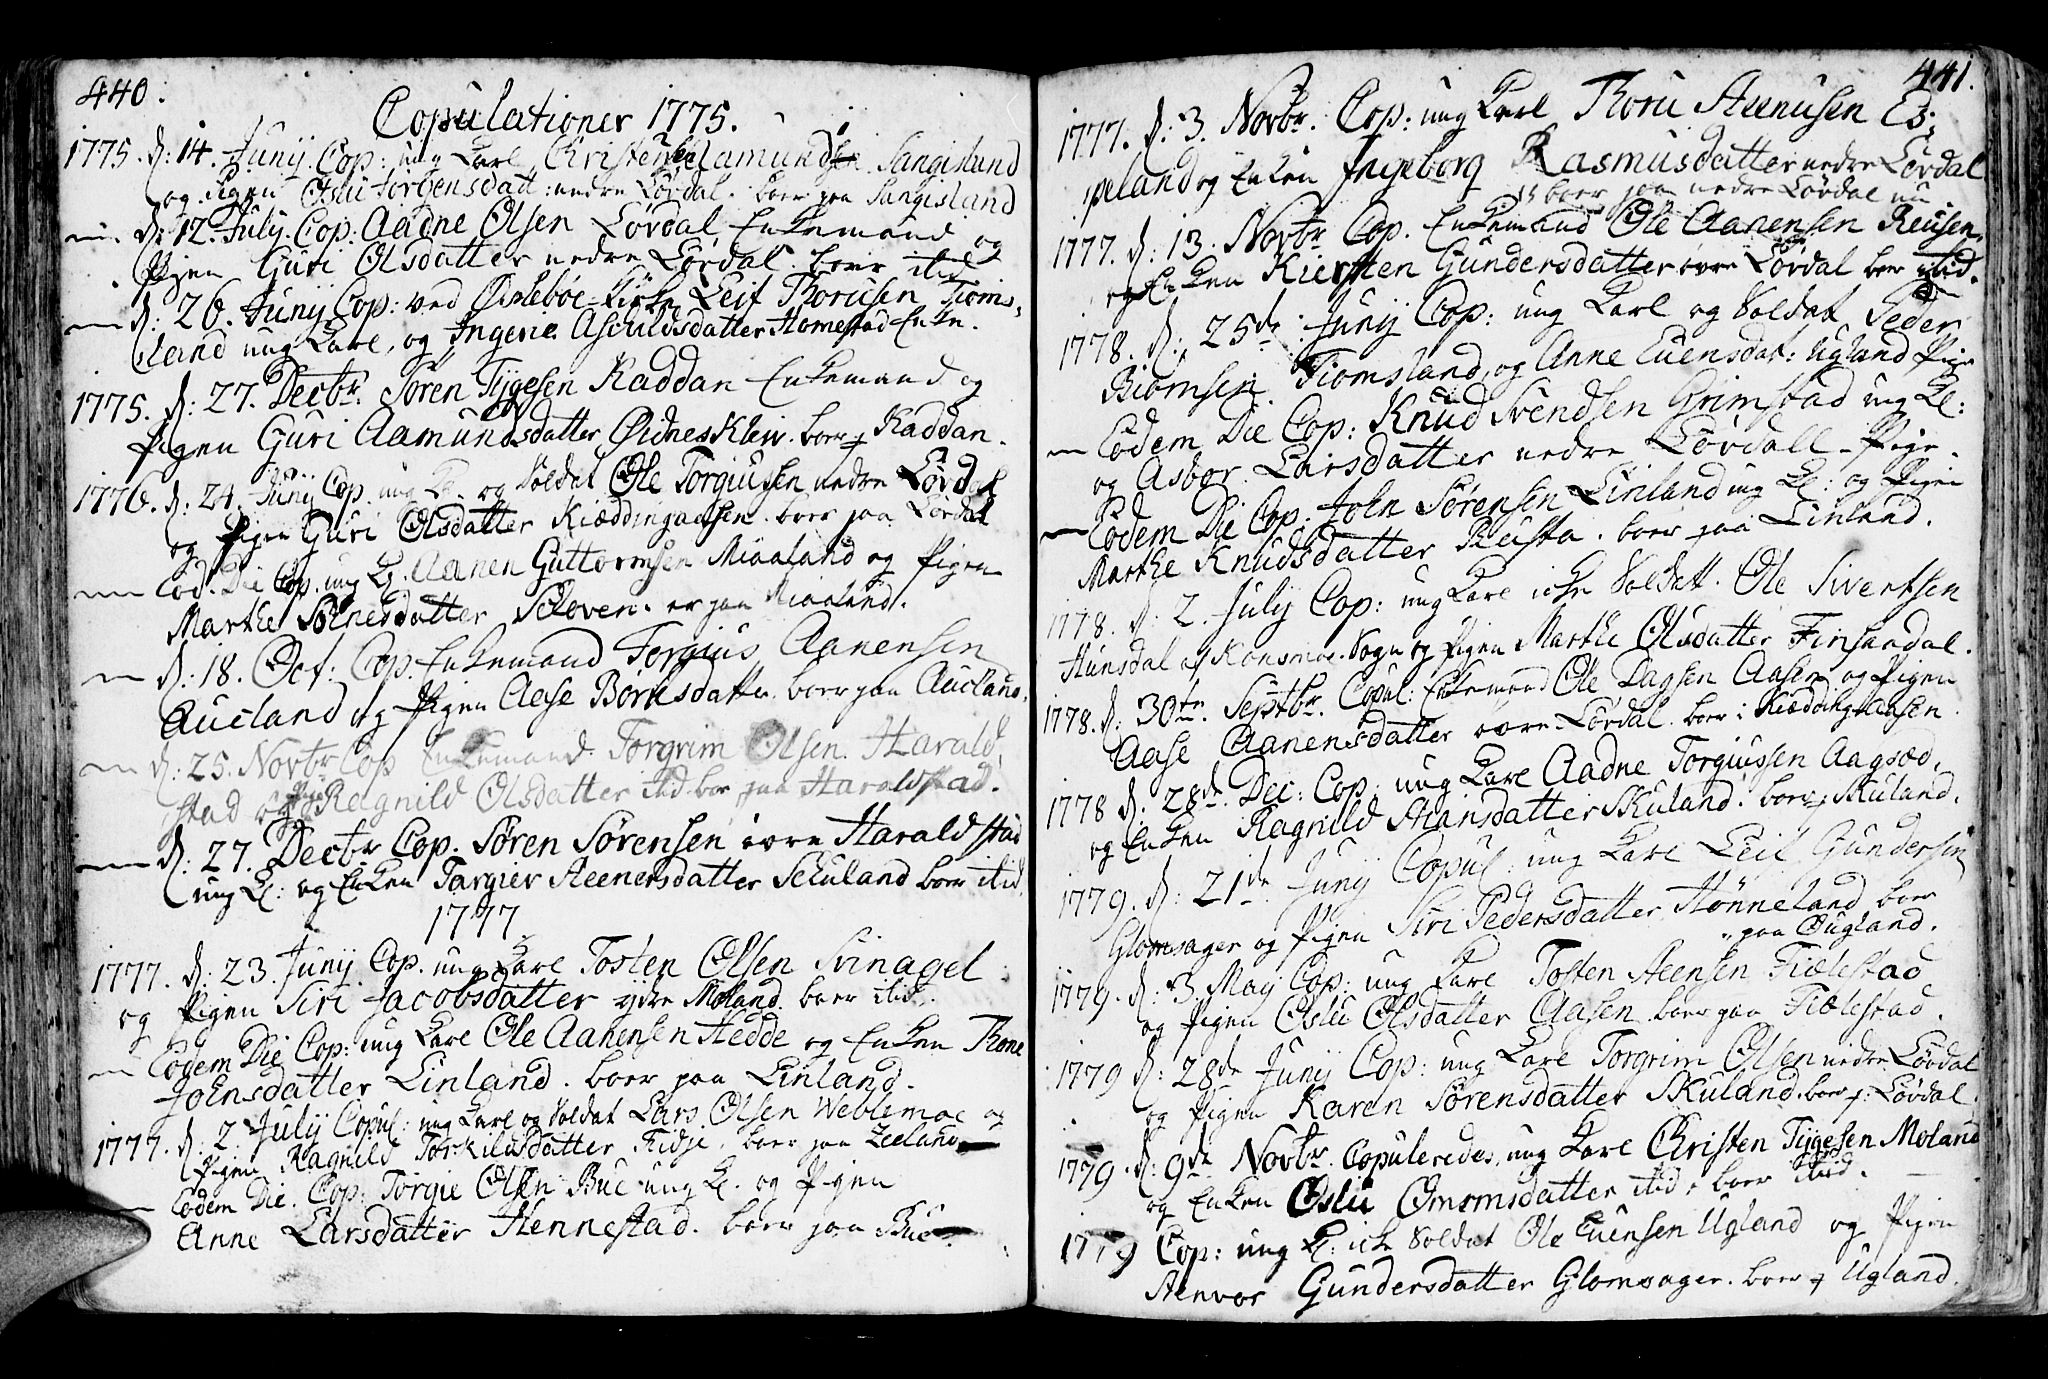 440.
Copulationer 1775.
1775. d: 14. Junij. Cop: ung Karl Christen Aamundsen Sangisland
og Pigen Oslu Torgensdatt: nedre Løvdal. boer paa Sangisland
— d: 12. July. Cop: Aadne Olsen Løvdal Enkemand og
Pigen Guri Olsdatter nedre Løvdal boer itid
— d: 26. Junij Cop: ved Øislebøe-Kirke Leif Thorusen Tioms-
land ung Karl, og Ingerie Aschildsdatter Homestad Enke.
1775. d: 27. Decbr. Søren Tÿgesen Raddan Enkemand og
Pigen Guri Aamundsdatter Øidneskleiv. boer p Raddan.
1776. d: 24. Junij Cop. ung K. og Soldat Ole Torgiusen nedre Løvdal
og Pigen Guri Olsdatter Kiæddingaasen. boer paa Løvdal
— Eod. Die Cop. ung K. Aanen Guttormsen Miaaland og Pigen
Marthe Sølnesdatter Schoven. er paa Miaaland.
— d: 18. Oct: Cop. Enkemand Torgius Aanensen
Aucland og Pigen Aase Børhisdatter. boer paa Aucland.
— d: 25. Novbr Cop Enkemand. Torgrim Olsen Harald,
stad og Pigen Ragnild Olsdatter itid boer paa Haraldstad.
— d: 27. Decbr Cop. Søren Sørensen øvre Haraldstad
ung K: og Enken Targier Aeenersdatter Schuland boer itid.
1777
1777. d: 23. Junij Cop. ung Karl Tosten Olsen Svinagel
og Pigen Siri Jacobsdatter ydre Moland. boer itid.
— Eodem Die Cop: ung Karl Ole Aanensen Hedde og Enken Thone
Johnsdatter Linland. boer paa Linland.
1777. d: 2. Julij Copul: ung Karl og Soldat Lars Olsen Weblemoe og
Pigen Ragnild Torkildsdatter Fidje. boer paa Leeland
— Eodem Die. Cop: Torgie Olsen Bue ung K. og Pigen
Anne Larsdatter Hennestad. boer paa Bue
441.
1777. d: 3. Novbr. Cop: ung Karl Thoru Aeenusen Es,
peland og Enken Ingeborg Rasmusdatter nedre Løvdal
boer paa nedre Løvdal nu
1777. d: 13. Novbr Cop. Enkemand Ole Aanensen Reusen,
og Enken Kiersten Gundersdatter øvre Løvdal boer itid.
1778. d: 25de Junij Cop: ung Karl og Soldat Peder
Biornsen Tiomsland, og Anne Euensdat: Ugland Pige
— Eodem Die Cop: Knud Svendsen Grimstad ung K:
og Asbør Larsdatter nedre Løvdall-Pige.
— Eodem Die Cop: John Sørensen Linland ung K: og Pigen
Marthe Knudsdatter Rusta. boer paa Linland.
1778. d: 2. Julij Cop: ung Karl icke Soldatt. Ole Sivertsen
Hunsdal af Konsmoe-Sogn og Pigen Marthe Olsdatter Finsaadal.
1778. d: 30te. Septbr. Copul: Enkemand Ole Dagsen Aasen og Pigen
Aase Aanensdatter øvre-Løvdal. boer i Kiæddingaasen.
1778 d: 28de. Dec: Cop: ung Karl Aadne Torgiussen Aagsæd,
og Enken Ragnild Hansdatter Skuland. boer p Skuland.
1779. d: 21de Junij Copul: ung Karl Leif Gundersen
Glomsager og Pigen Siri Pedersdatter Hønneland boer
paa Øugland.
1779. d: 3 Maij Cop: ung Karl Tosten Aeensen Fiælestad
og Pigen Oslu Olsdatter Aasen boer paa Fiælestad.
1779 d: 28de Junij Cop: ung Karl Torgrim Olsen nedre Løvdal
og Pigen Karen Sørensdatter Skuland. boer p: Løvdal.
1779. d: 9de Novbr. Copuleredes, ung Karl Christen Tÿgesen Moland
og Enken Oslu Omsmsdatter itid, boer itid.
1779 Cop: ung K: icke Soldat Ole Euensen Ugland og Pigen
Aenvor Gundersdatter Glomsager. boer p Ugland.